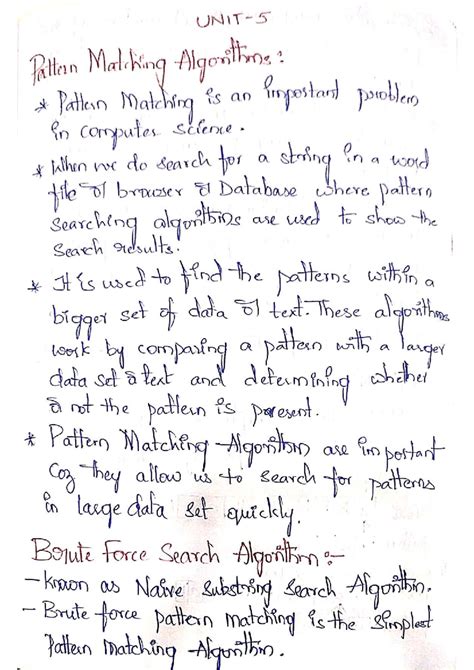 UNIT-5
Pattern Matching Algorithms:
* Pattern Matching is an important problem
in computer science.
* When we do search for a string in a word
file or browser or Database where pattern
searching algorithms are used to show the
search results.
* It is used to find the patterns within a
bigger set of data or text. These algorithms
work by comparing a pattern with a larger
data set or text and determining whether
or not the pattern is present.
* Pattern Matching Algorithm are important
coz they allow us to search for patterns
in large data set quickly.
Brute Force Search Algorithm:-
- Known as Naive substring search Algorithm.
- Brute force pattern matching is the simplest
Pattern matching Algorithm.